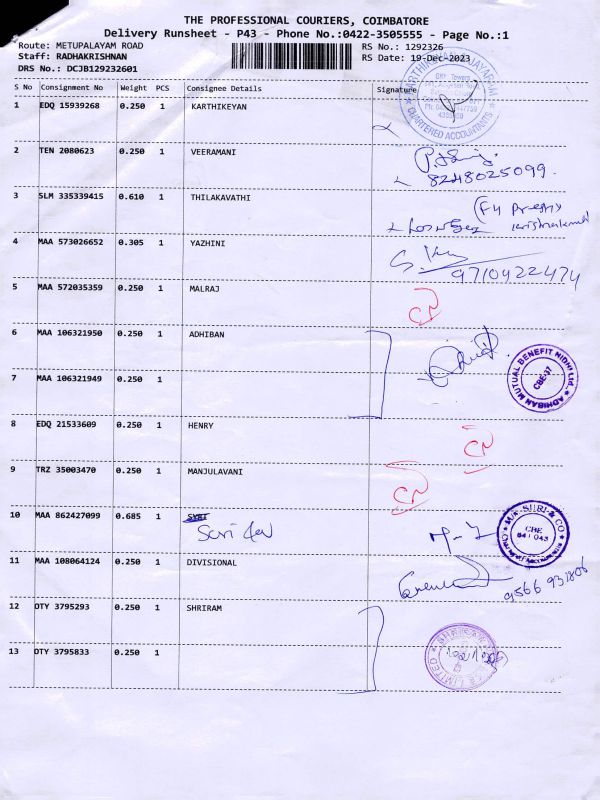 THE PROFESSIONAL COURIERS, COIMBATORE
Delivery Runsheet - P43 - Phone No.:0422-3505555 - Page No.:1
Route: METUPALAYAM ROAD RS No.: 1292326
Staff: RADHAKRISHNAN RS Date: 19-Dec-2023
DRS No.: DCJB129232601
S No Consignment No Weight PCS Consignee Details Signature
1 EDQ 15939268 0.250 1 KARTHIKEYAN
CHARTERED ACCOUNTANTS
2 TEN 2080623 0.250 1 VEERAMANI
8248025099
3 SLM 335339415 0.610 1 THILAKAVATHI
4 MAA 573026652 0.305 1 YAZHINI
9710422474
5 MAA 572035359 0.250 1 MALRAJ
CN
6 MAA 106321950 0.250 1 ADHIBAN
ADHIBAN MUTUAL BENEFIT NIDHI LTD.
CBE-37
7 MAA 106321949 0.250 1
8 EDQ 21533609 0.250 1 HENRY
CN
9 TRZ 35003470 0.250 1 MANJULAVANI
CN
10 MAA 862427099 0.685 1
M.K. SURI & CO
CBE
641 043
11 MAA 108064124 0.250 1 DIVISIONAL
9566 931806
12 OTY 3795293 0.250 1 SHRIRAM
13 OTY 3795833 0.250 1
LIMITED